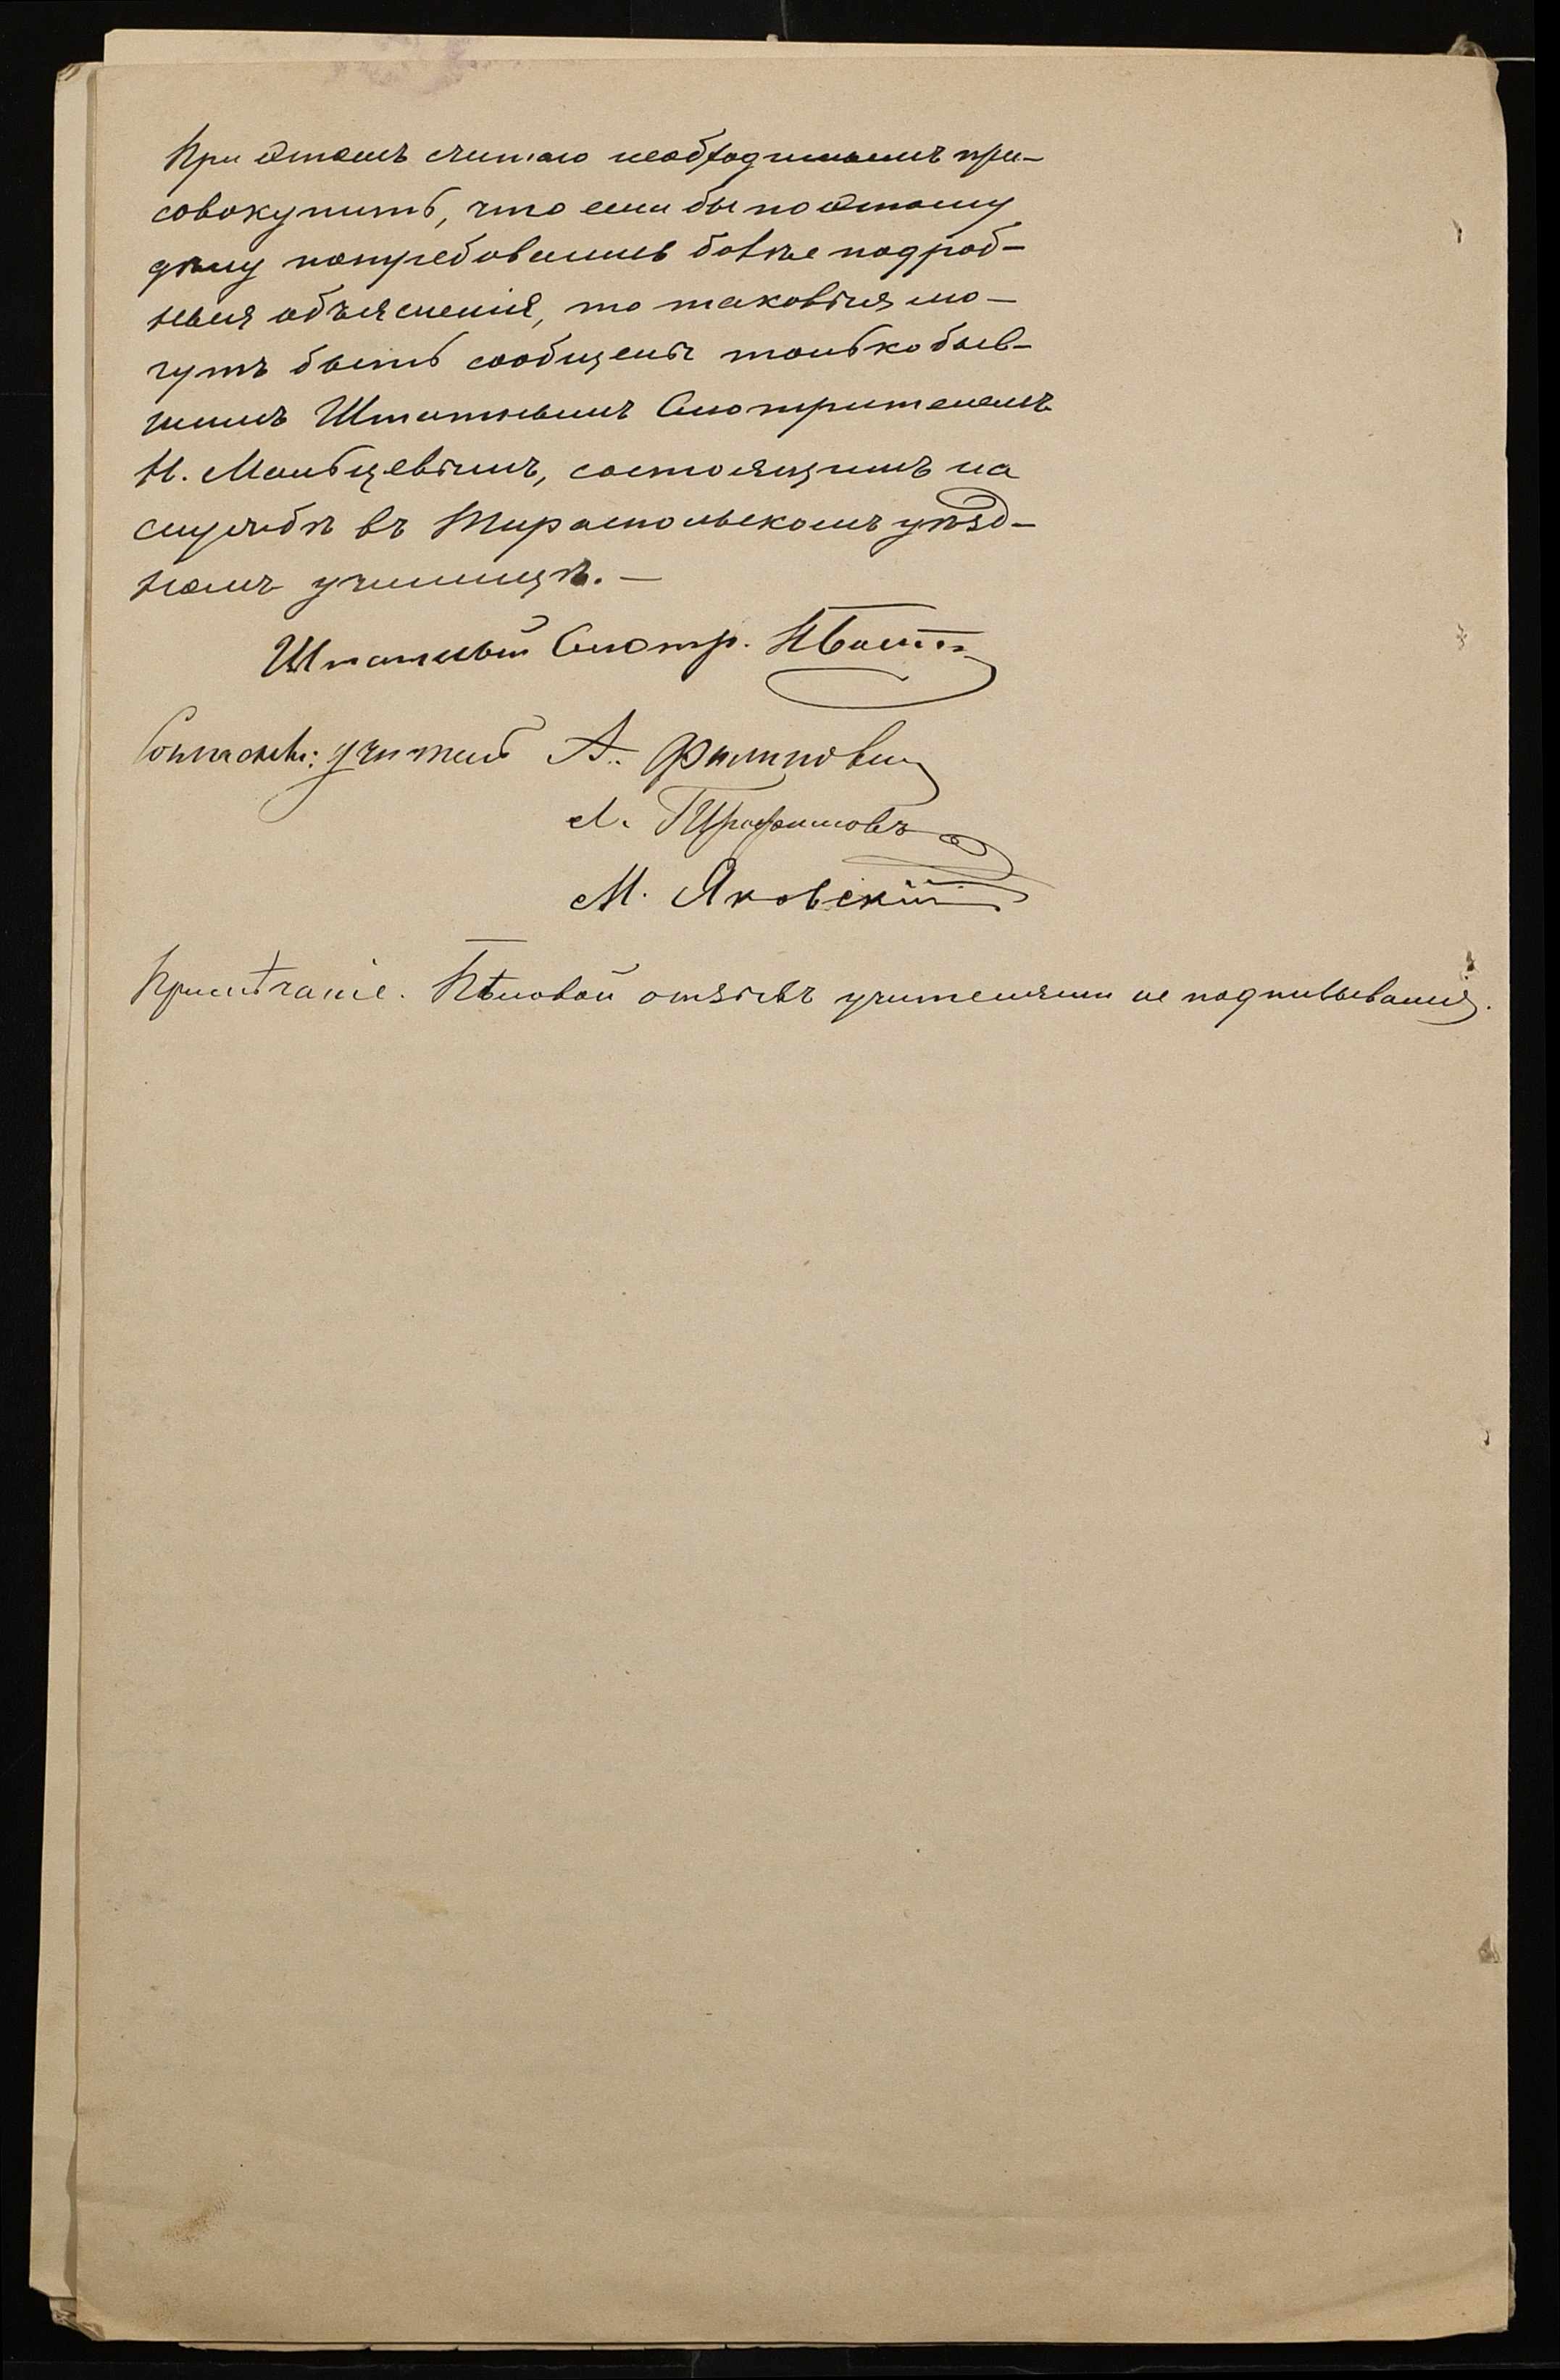 При этомъ считаю необходимымъ при-
совокупить, что если бы по этому
дѣлу потребовались болѣе подроб-
ныя объясненія, то таковыя мо-
гутъ быть сообщены только быв-
шимъ Штатнымъ Смотрителемъ
Н. Мальцевымъ, состоящимъ на
службѣ въ Тираспольскомъ уѣзд-
номъ училищѣ. —
Штатный Смотр.
учитель А. Филипович
Л. Трофимовъ
М. Яковскій
Примѣчаніе. Бѣловой отзывъ учителями не подписывался.